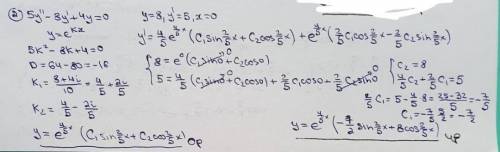 ② 5y'' - 8y' + 4y = 0
y = e^{kx}
5k² - 8k + 4 = 0
D = 64 - 80 = -16
k₁ = (8+4i)/10 = 4/5 + 2i/5
k₂ = 4/5 - 2i/5
y = e^{4/5 x} (C₁ sin 2/5 x + C₂ cos 2/5 x) ОР
y = 8, y' = 5, x = 0
y' = 4/5 e^{4/5 x} (C₁ sin 2/5 x + C₂ cos 2/5 x) + e^{4/5 x} (2/5 C₁ cos 2/5 x - 2/5 C₂ sin 2/5 x)
{ 8 = e⁰ (C₁ sin 0 + C₂ cos 0)
5 = 4/5 (C₁ sin 0 + C₂ cos 0) + 2/5 C₁ cos 0 - 2/5 C₂ sin 0
{ C₂ = 8
4/5 C₂ + 2/5 C₁ = 5
2/5 C₁ = 5 - 4/5 · 8 = (25-32)/5 = -7/5
C₁ = -7/5 · 5/2 = -7/2
y = e^{4/5 x} (-7/2 sin 2/5 x + 8 cos 2/5 x) ЧР